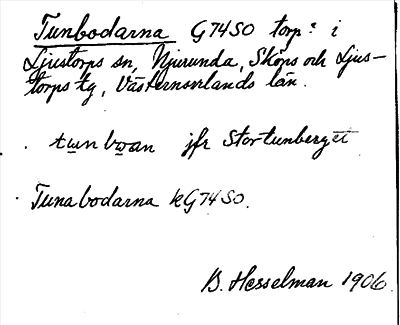 Tunbodarna G74SO torp: i
Ljustorps sn, Njurunda, Sköns och Ljus-
torps tg, Västernorrlands län.
tunboan jfr Stortunberget
Tunabodarna kG74SO.
B. Hesselman 1906.